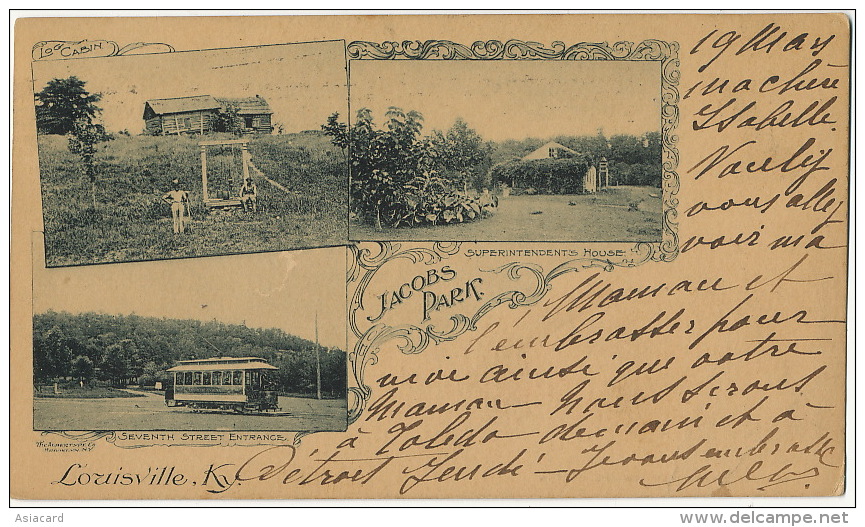 LOG CABIN
SUPERINTENDENT'S HOUSE.
JACOBS
PARK.
SEVENTH STREET ENTRANCE.
THE ALBERTYPE CO.
BROOKLYN, N.Y.
Louisville, Ky.
19 Mars
ma chère
Isabelle.
vous allez
voir ma
Maman et
l'embrasser pour
moi ainsi que votre
Maman - nous serons
à Toledo - demain et à
Détroit Jeudi - Je vous embrasse
Asiacard
www.delcampe.net